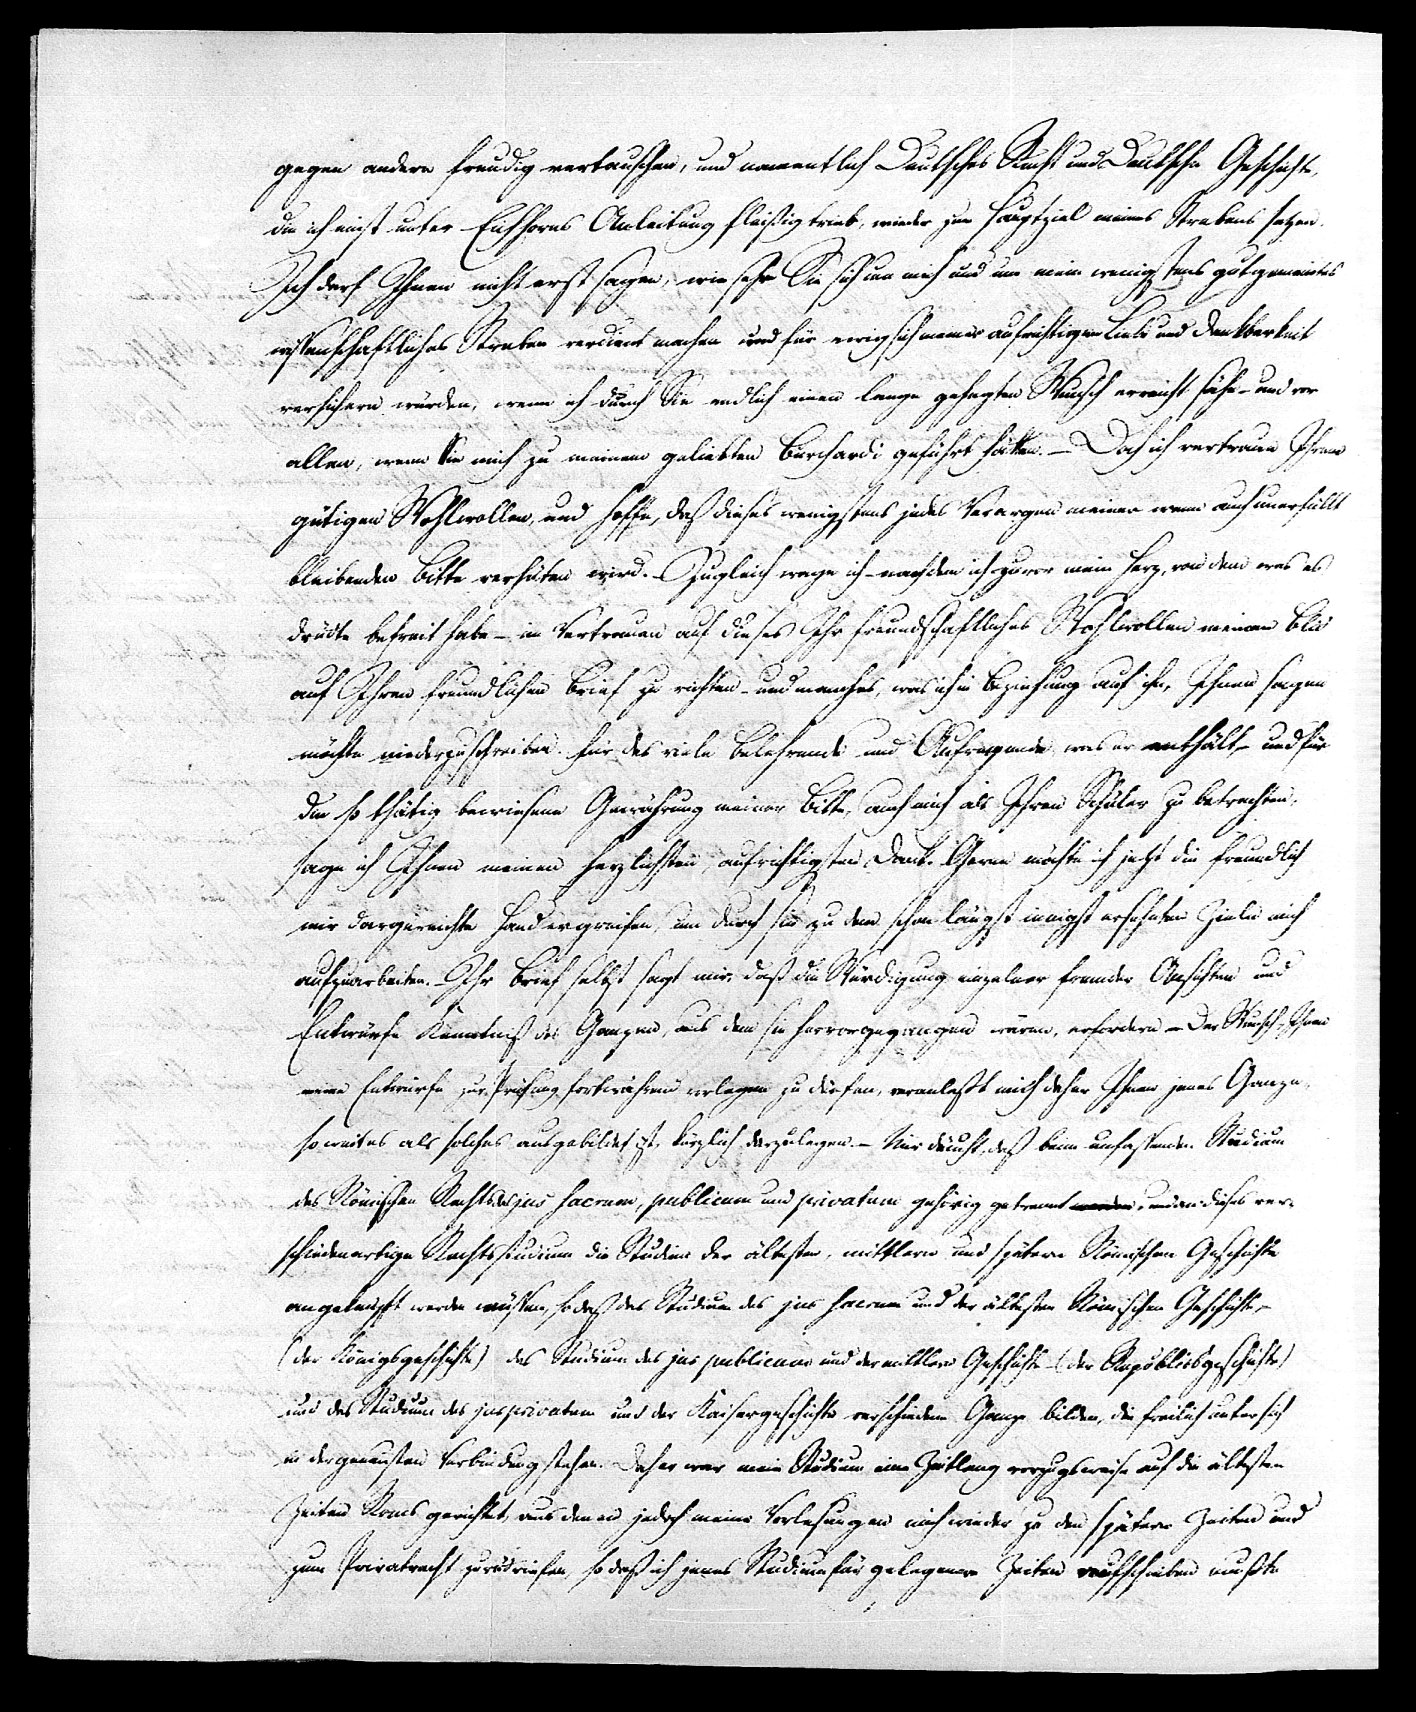 gegen andere freudig vertauschen, und namentlich Deutsches Recht und Deutsche Geschichte,
die ich einst unter Eichhorns Anleitung fleißig trieb, wieder zum Hauptziel meines Strebens setzen.
Ich darf Ihnen nicht erst sagen, wie sehr Sie sich um mich und um mein wenigstens gutgemeintes
wissenschaftliches Streben verdient machen und für ewig sich meiner aufrichtigen Liebe und Dankbarkeit
versichern würden, wenn ich durch Sie endlich einen lange gehegten Wunsch erreicht sähe – und vor
allen, wenn Sie mich zu meinem geliebten Burchardi geführt hätten. – Doch ich vertraue Ihrem
gütigen Wohlwollen, und hoffe, daß dieses wenigstens jedes Verargen meiner wenn auch unerfüllt
bleibenden Bitte verhüten wird. – Zugleich wage ich – nachdem ich zuvor mein Herz, von dem was es
drückte befreit habe – im Vertrauen auf dieses Ihr freundschaftliches Wohlwollen meinen Blick
auf Ihren freundlichen Brief zu richten – und manches, was ich in Beziehung auf ihn, Ihnen sagen
möchte niederzuschreiben. Für das viele Belehrende und Aufregende was er enthält – und für
die so thätig bewiesene Gewährung meiner Bitte, auch mich als Ihren Schüler zu betrachten,
sage ich Ihnen meinen herzlichsten, aufrichtigsten Dank. Gerne möchte ich jetzt die freundlich
mir dargereichte Hand ergreifen, um durch sie zu dem schon längst innigst ersehnten Ziele mich
aufzuarbeiten. – Ihr Brief selbst sagt mir, daß die Würdigung einzelner fremder Ansichten und
Entwürfe Kenntniß des Ganzen, aus dem sie hervorgegangen wären, erfordere – Der Wunsch, Ihnen
meine Entwürfe zur Prüfung fortwährend vorlegen zu dürfen, veranlaßt mich daher Ihnen jenes Ganze,
soweit es als solches ausgebildet ist, kürzlich darzulegen. – Mir däucht, daß beim umfassenden Studium
des Römischen Rechts das jus sacrum, publicum und privatum gehörig getrennt, und an dieses ver-
schiedenartige Rechtsstudium die Studien der ältesten, mittlern und spätern Römischen Geschichte
angeknüpft werden müssen, so daß das Studium des jus sacrum und der ältesten Römischen Geschichte –
(der Königsgeschichte) das Studium des jus publicum und der mittlern Geschichte – (der Republiksgeschichte)
und das Studium des jus privatum und der Kaisergeschichte verschiedene Ganze bilden, die freilich unter sich
in der genausten Verbindung stehen. Daher war mein Studium eine Zeitlang vorzugsweise auf die ältesten
Zeiten Roms gerichtet, aus denen jedoch meine Vorlesungen mich wieder zu den spätern Zeiten und
zum Privatrecht zurückriefen, so daß ich jenes Studium für gelegenere Zeiten aufschieben mußte